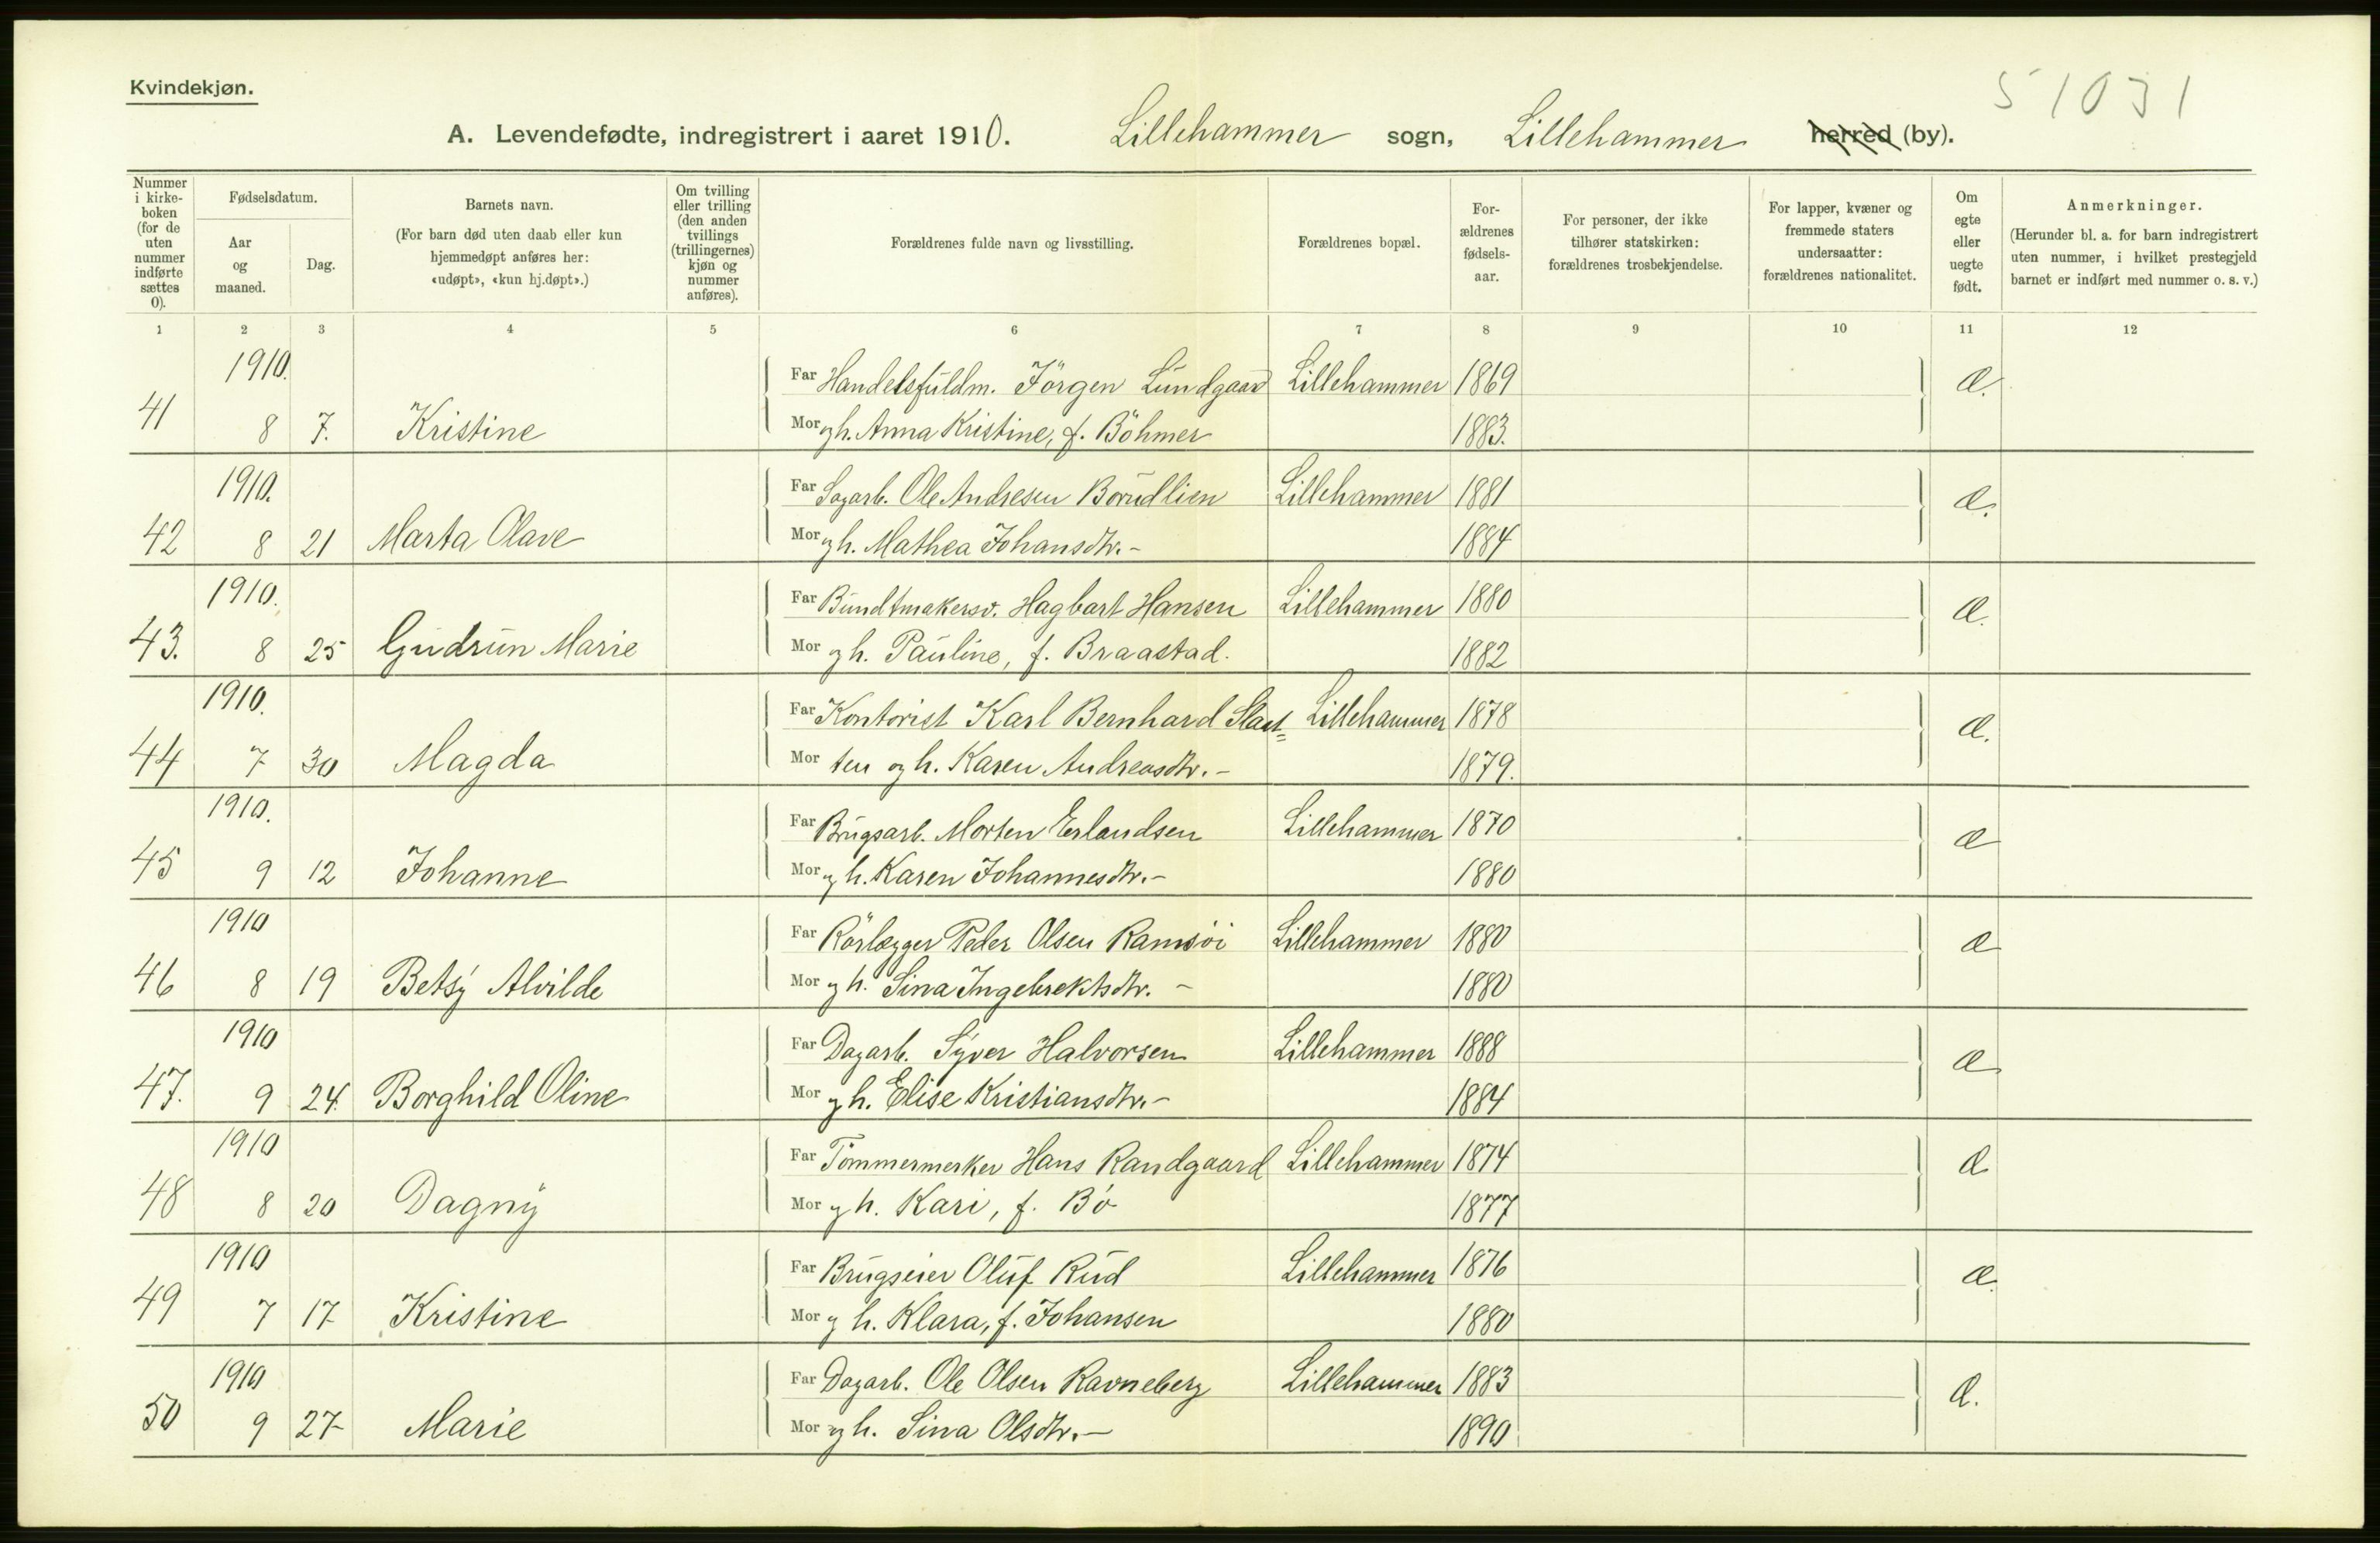 Kvindekjøn.
51031
A. Levendefødte, indregistrert i aaret 1910. Lillehammer sogn, Lillehammer herred (by).
Nummer i kirke-boken (for de uten nummer indførte sættes 0).
Fødselsdatum.
Aar og maaned.
Dag.
Barnets navn.
(For barn død uten daab eller kun hjemmedøpt anføres her: «udøpt», «kun hj.døpt».)
Om tvilling eller trilling (den anden tvillings (trillingernes) kjøn og nummer anføres).
Forældrenes fulde navn og livsstilling.
Forældrenes bopæl.
For-ældrenes fødsels-aar.
For personer, der ikke tilhører statskirken: forældrenes trosbekjendelse.
For lapper, kvæner og fremmede staters undersaatter: forældrenes nationalitet.
Om egte eller uegte født.
Anmerkninger.
(Herunder bl. a. for barn indregistrert uten nummer, i hvilket prestegjeld barnet er indført med nummer o. s. v.)
1 2 3 4 5 6 7 8 9 10 11 12
1910. Far Handelsfuldm. Jörgen Lundgaard Lillehammer 1869 Æ.
41 8 7. Kristine Mor og h. Anna Kristine, f. Böhmer 1883.
1910. Far Sagarb. Ole Andresen Borudlien Lillehammer 1881 Æ.
42 8 21 Marta Olave Mor og h. Mathea Johansdtr. - 1884
1910. Far Bundtmakersv. Hagbart Hansen Lillehammer 1880 Æ.
43. 8 25 Gudrun Marie Mor og h. Pauline, f. Braastad. 1882
1910. Far Kontorist Karl Bernhard Slaat= Lillehammer 1878 Æ.
44 7 30 Magda Mor ten og h. Karen Andreasdtr. - 1879.
1910. Far Brugsarb. Morten Erlandsen Lillehammer 1870 Æ
45 9 12 Johanne Mor og h. Karen Johannesdtr. - 1880
1910 Far Rörlægger Peder Olsen Ramsöi Lillehammer 1880 Æ
46 8 19 Betsy Alvilde Mor og h. Sina Ingebrektsdtr. - 1880
1910 Far Dagarb. Syver Halvorsen Lillehammer 1888 Æ
47. 9 24. Borghild Oline Mor og h. Elise Kristiansdtr. - 1884
1910 Far Tömmermerker Hans Randgaard Lillehammer 1874 Æ
48 8 20 Dagny Mor og h. Kari, f. Bö 1877
1910 Far Brugseier Oluf Rud Lillehammer 1876 Æ.
49 7 17 Kristine Mor og h. Klara, f. Johansen 1880
1910 Far Dagarb. Ole Olsen Ravneberg Lillehammer 1883 Æ.
50 9 27 Marie Mor og h. Sina Olsdtr. - 1890